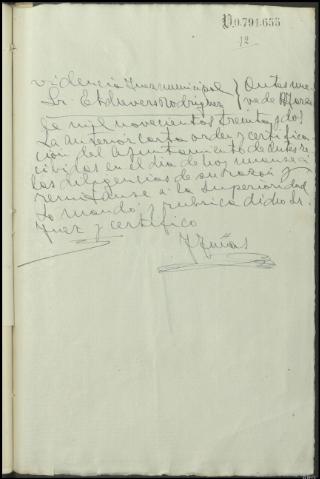 P.0.794.655
12
videncia Juez municipal } Ontas nue
Sr. Etchevers Rodriguez } ve de
de mil novecientos treinta y dos
La anterior carta orden y certifica
ción del Ayuntamiento de re
cividas en el día de hoy unanse á
las diligencias de su razón y
remitanse á la Superioridad
Lo mandó y rubrica dicho Sr.
Juez y certifico